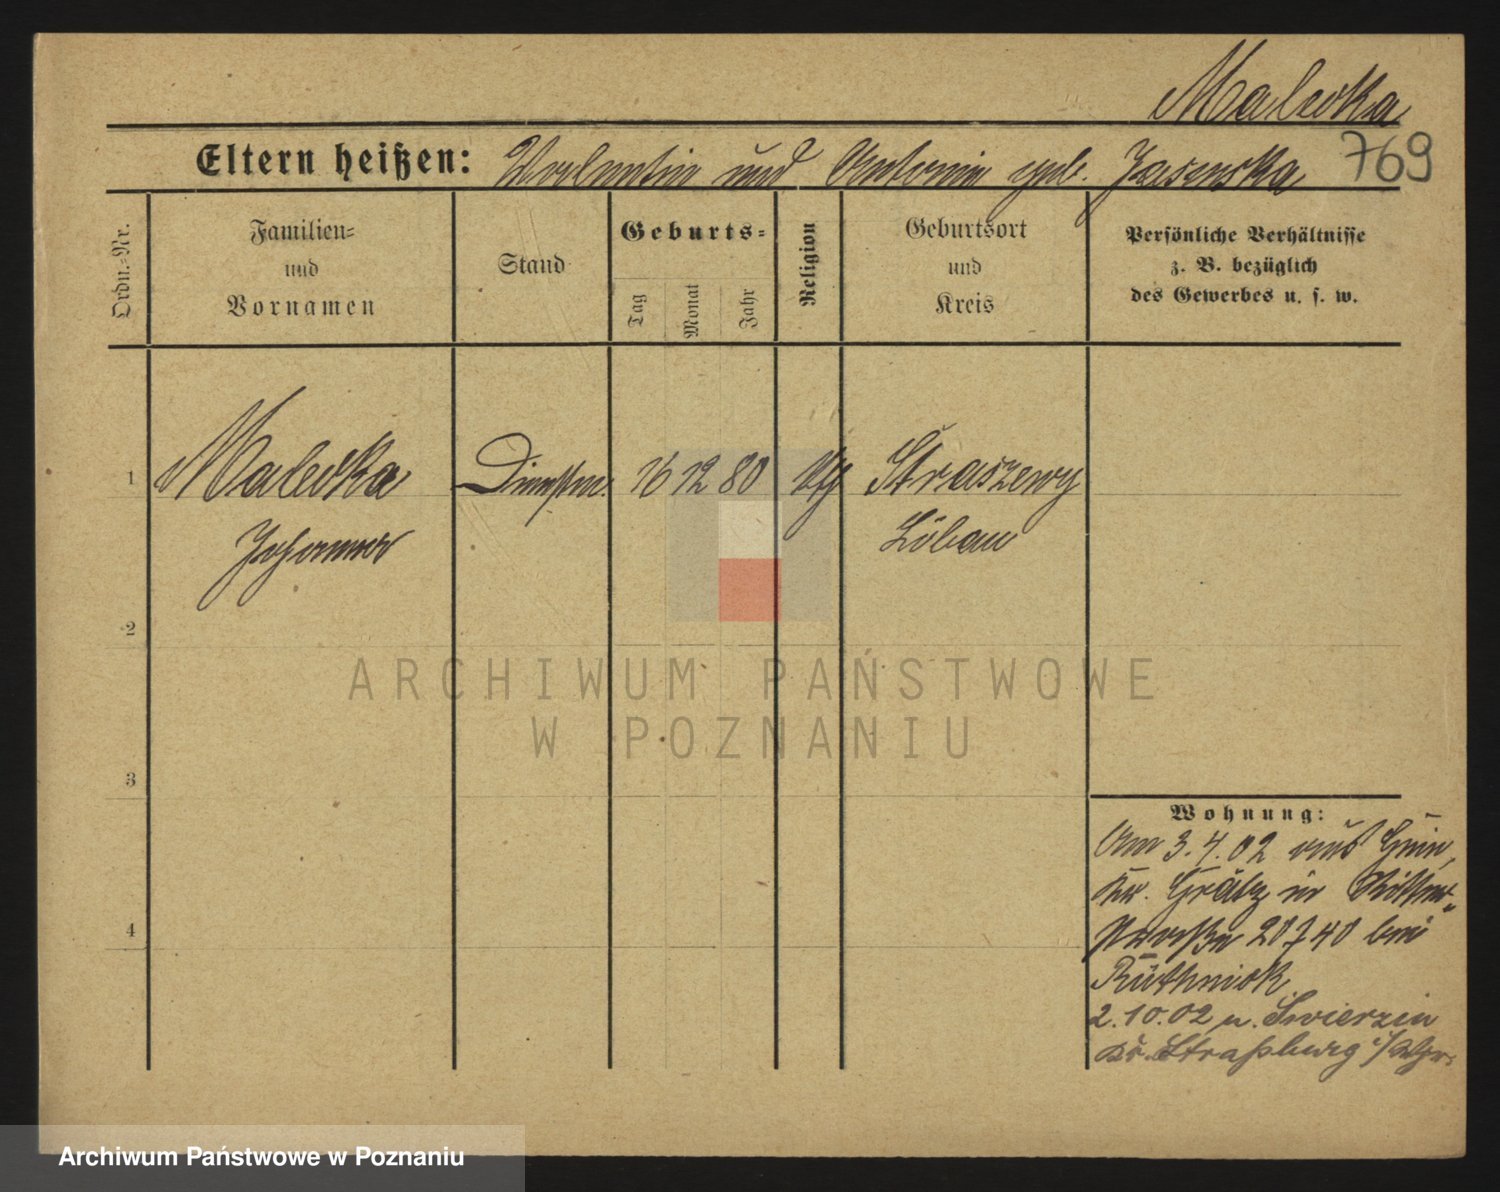 Malecka
Eltern heißen: Valentin und Antonie geb. Jasinska 769
Ordn.-Nr.
Familien-
und
Vornamen
Stand
Geburts-
Tag
Monat
Jahr
Religion
Geburtsort
und
Kreis
Persönliche Verhältnisse
z. B. bezüglich
des Gewerbes u. s. w.
1 Malecka 16 12 80 Straszewy
Johanna Löbau
2
3
4
Wohnung:
Am 3.4.02 aus
Kr. Grätz in Ritter-
straße 20 bei
Ruthnick
2.10.02 n. Swierzin
Kr. Straßburg i/Wpr.
ARCHIWUM PAŃSTWOWE
W POZNANIU
Archiwum Państwowe w Poznaniu